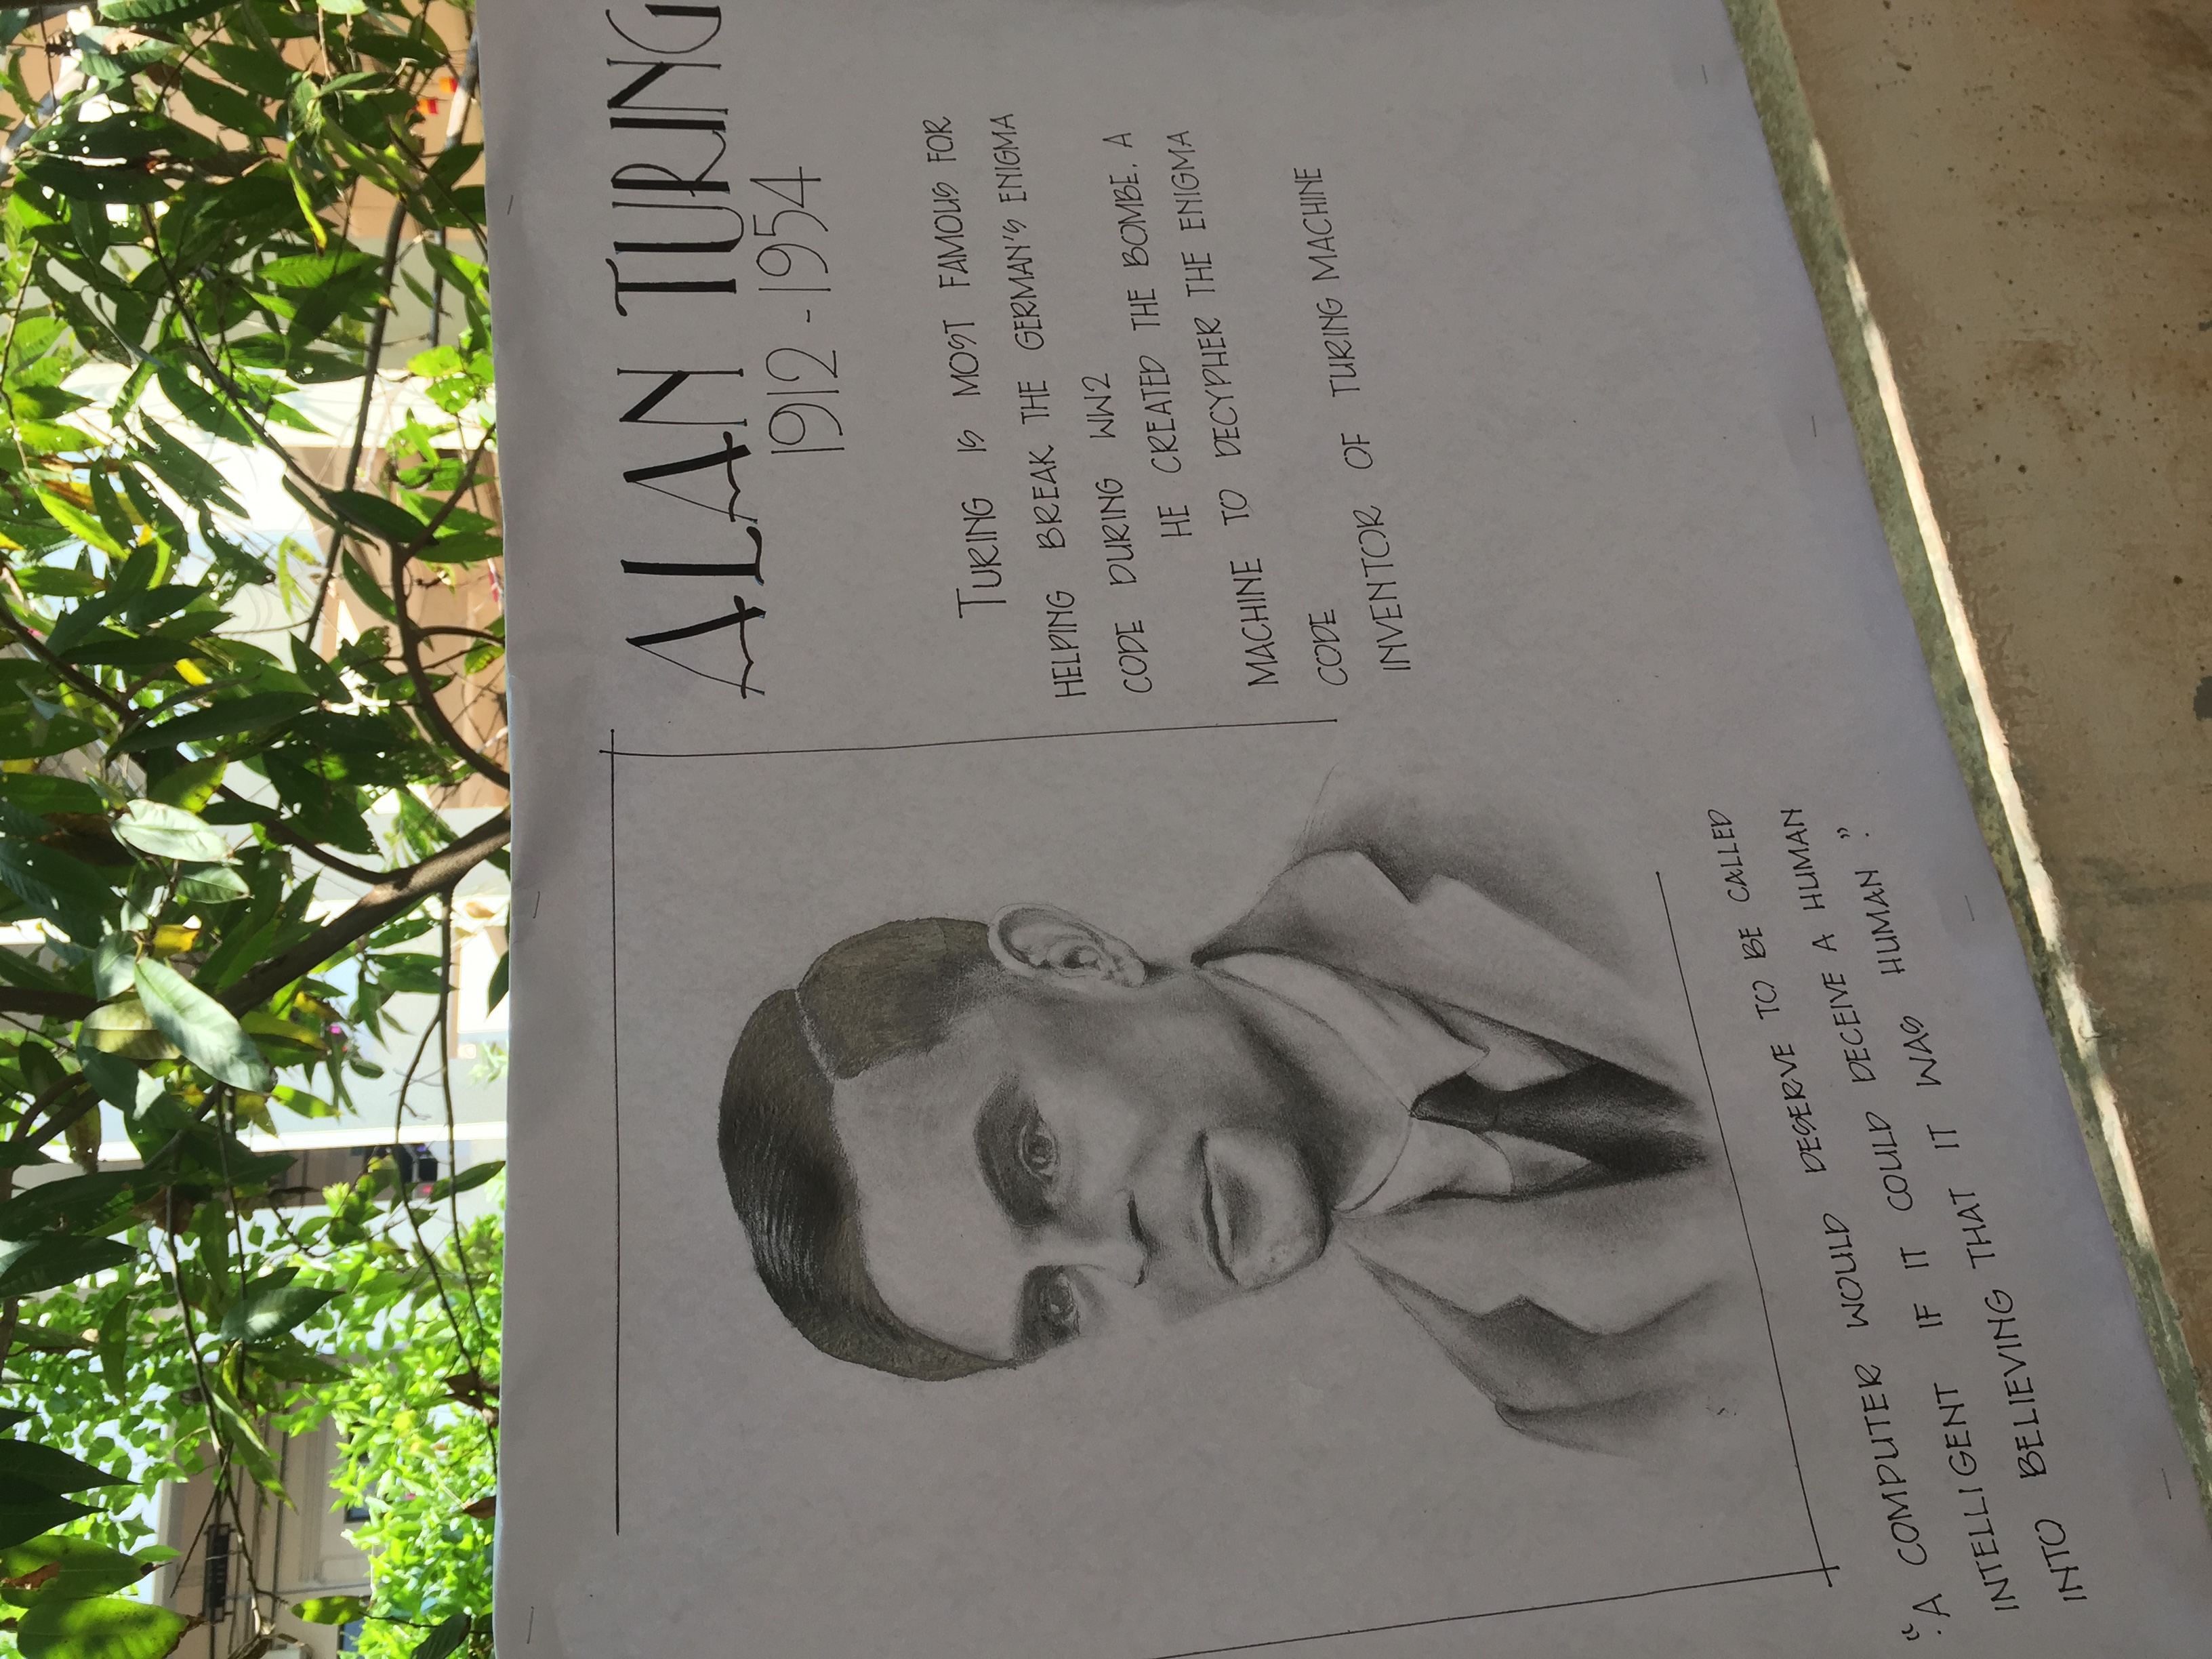 ALAN TURING
1912-1954
TURING IS MOST FAMOUS FOR
HELPING BREAK THE GERMAN'S ENIGMA
CODE DURING WW2
HE CREATED THE BOMBE. A
MACHINE TO DECYPHER THE ENIGMA
CODE
INVENTOR OF TURING MACHINE
"A COMPUTER WOULD DESERVE TO BE CALLED
INTELLIGENT IF IT COULD DECEIVE A HUMAN
INTO BELIEVING THAT IT WAS HUMAN."